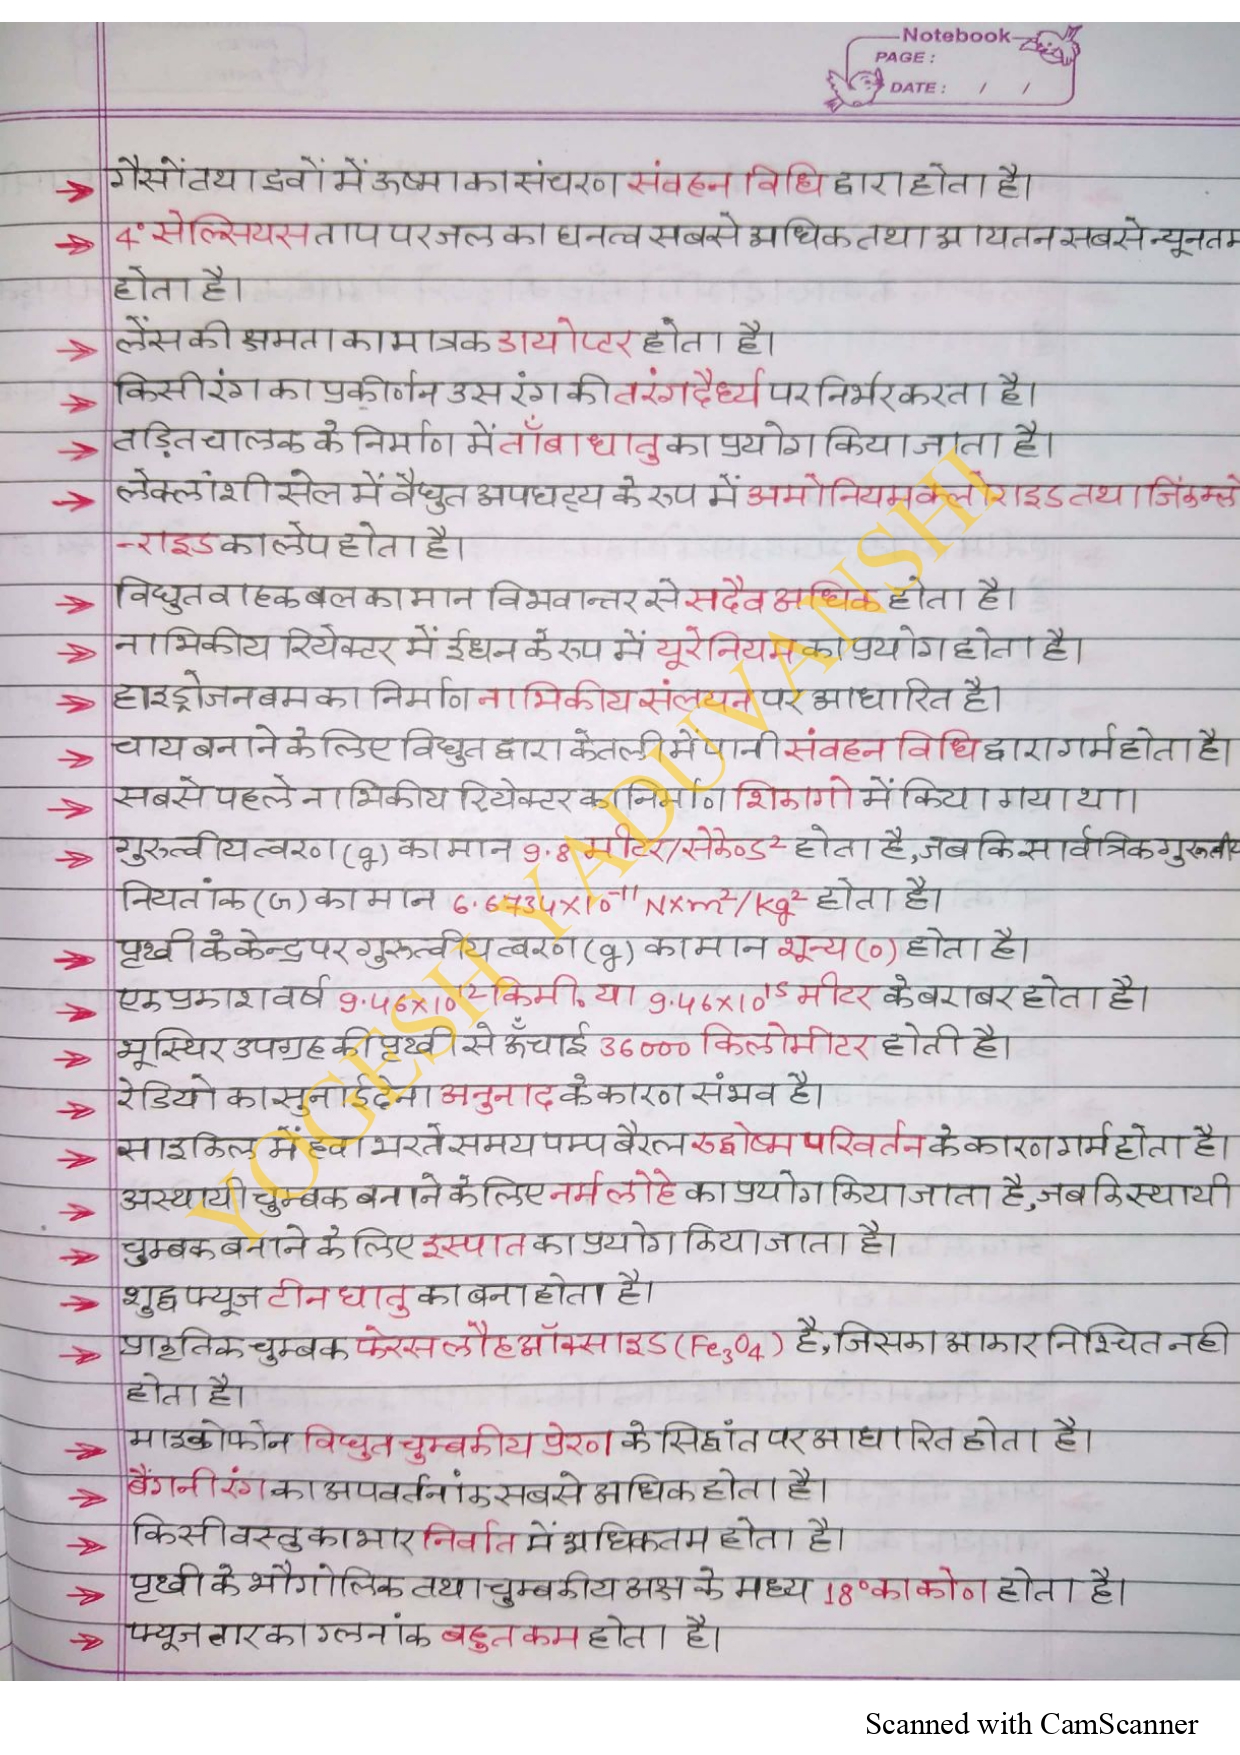 Notebook
PAGE :
DATE : / /
→ गैसों तथा द्रवों में ऊष्मा का संचरण संवहन विधि द्वारा होता है।
→ 4° सेल्सियस ताप पर जल का घनत्व सबसे अधिक तथा आयतन सबसे न्यूनतम
होता है।
→ लेंस की क्षमता का मात्रक डायोप्टर होता है।
→ किसी रंग का प्रकीर्णन उस रंग की तरंगदैर्ध्य पर निर्भर करता है।
→ तड़ित चालक के निर्माण में ताँबा धातु का प्रयोग किया जाता है।
→ लेक्लांशी सेल में वैधुत अपघट्य के रूप में अमोनियम क्लोराइड तथा जिंक क्लो
-राइड का लेप होता है।
→ विधुत वाहक बल का मान विभवान्तर से सदैव अधिक होता है।
→ नाभिकीय रियेक्टर में ईधन के रूप में यूरेनियम का प्रयोग होता है।
→ हाइड्रोजन बम का निर्माण नाभिकीय संलयन पर आधारित है।
→ चाय बनाने के लिए विधुत द्वारा केतली में पानी संवहन विधि द्वारा गर्म होता है।
→ सबसे पहले नाभिकीय रियेक्टर का निर्माण शिकागो में किया गया था।
→ गुरुत्वीय त्वरण (g) का मान 9.8 मीटर/सेकेण्ड² होता है, जबकि सार्वत्रिक गुरुत्वीय
नियतांक (G) का मान 6.6734×10⁻¹¹ N×m²/kg² होता है।
→ पृथ्वी के केन्द्र पर गुरुत्वीय त्वरण (g) का मान शून्य (0) होता है।
→ एक प्रकाश वर्ष 9.46×10¹² किमी. या 9.46×10¹⁵ मीटर के बराबर होता है।
→ भू स्थिर उपग्रह की पृथ्वी से ऊँचाई 36000 किलोमीटर होती है।
→ रेडियो का सुनाई देना अनुनाद के कारण संभव है।
→ साइकिल में हवा भरते समय पम्प बैरल रुद्धोष्म परिवर्तन के कारण गर्म होता है।
→ अस्थायी चुम्बक बनाने के लिए नर्म लोहे का प्रयोग किया जाता है, जबकि स्थायी
→ चुम्बक बनाने के लिए इस्पात का प्रयोग किया जाता है।
→ शुद्ध फ्यूज टीन धातु का बना होता है।
→ प्राकृतिक चुम्बक फेरस लौह ऑक्साइड (Fe₃O₄) है, जिसका आकार निश्चित नही
होता है।
→ माइक्रोफोन विधुत चुम्बकीय प्रेरण के सिद्धांत पर आधारित होता है।
→ बैंगनी रंग का अपवर्तनांक सबसे अधिक होता है।
→ किसी वस्तु का भार निर्वात में अधिकतम होता है।
→ पृथ्वी के भौगोलिक तथा चुम्बकीय अक्ष के मध्य 18° का कोण होता है।
→ फ्यूज तार का गलनांक बहुत कम होता है।
YOGESH YADUVANSHI
Scanned with CamScanner